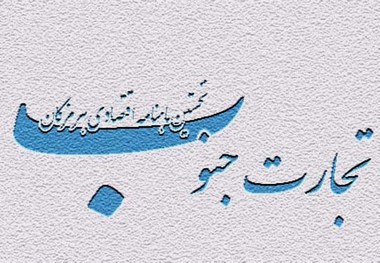 تجارت جنوب
نخستین ماهنامه اقتصادی هرمزگان